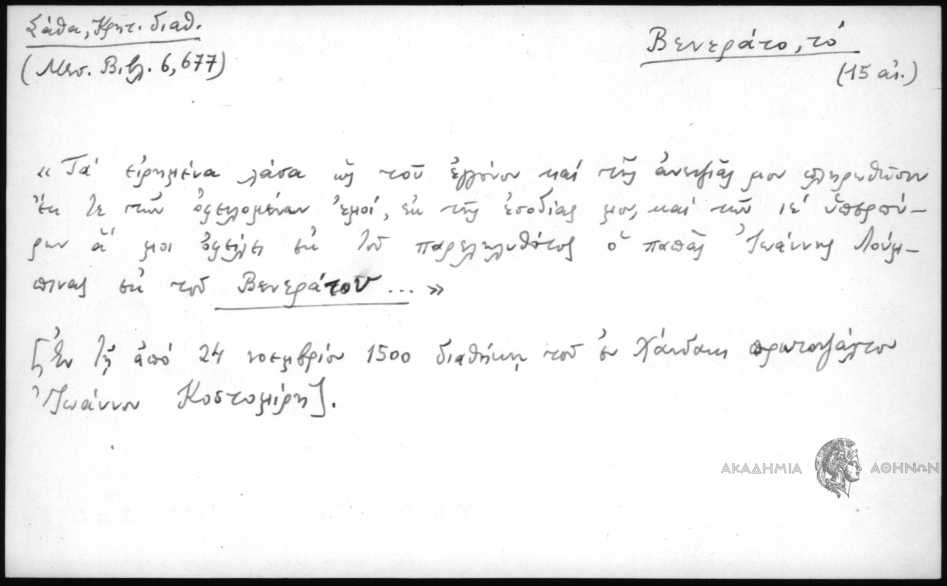 Σάθα, Κρητ. διαθ.
(Μεσ. Βιβλ. 6, 677)
Βενεράτο, τό
(15 αἰ.)
«Τά εἰρημένα πάσα ὡς τοῦ ἐγγόνου καί τῆς ἀνεψιᾶς μου πληρωθῶσιν
ἔκ τε τῶν ὀφειλομένων ἐμοί, ἐκ τῆς ἐσοδίας μου, καί τῶν ιε' ὑπερπύ-
ρων ἅ μοι ὀφείλει ἐκ τοῦ παρεληλυθότος ὁ παπᾶς Ἰωάννης Λούμ-
πινας ἐκ τοῦ Βενεράτου ... »
[Ἐν τῇ ἀπό 24 νοεμβρίου 1500 διαθήκῃ τοῦ ἐν Χάνδακι πρωτοψάλτου
Ἰωάννου Κοστομίρη].
ΑΚΑΔΗΜΙΑ ΑΘΗΝΩΝ